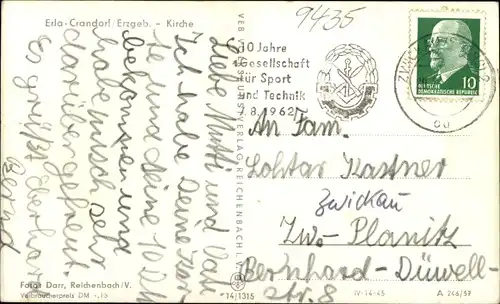 Erla-Crandorf/Erzgeb. - Kirche
9435
Liebe Mutti und Vati
Ich habe Deine Kar
te und deine 10 DM
bekommen und
habe mich sehr
darüber gefreut.
Es grüßt Eberhard
Bernd
Fotos Darr, Reichenbach/V.
Verbraucherpreis DM -,15
14/1315
10 Jahre
Gesellschaft
für Sport
und Technik
7.8.1962
DEUTSCHE
DEMOKRATISCHE REPUBLIK
10
An Fam.
Lothar Kastner
Zwickau
Zw.- Planitz
Bernhard-Düwell-
str. 8
IV-14-45
A 246/57